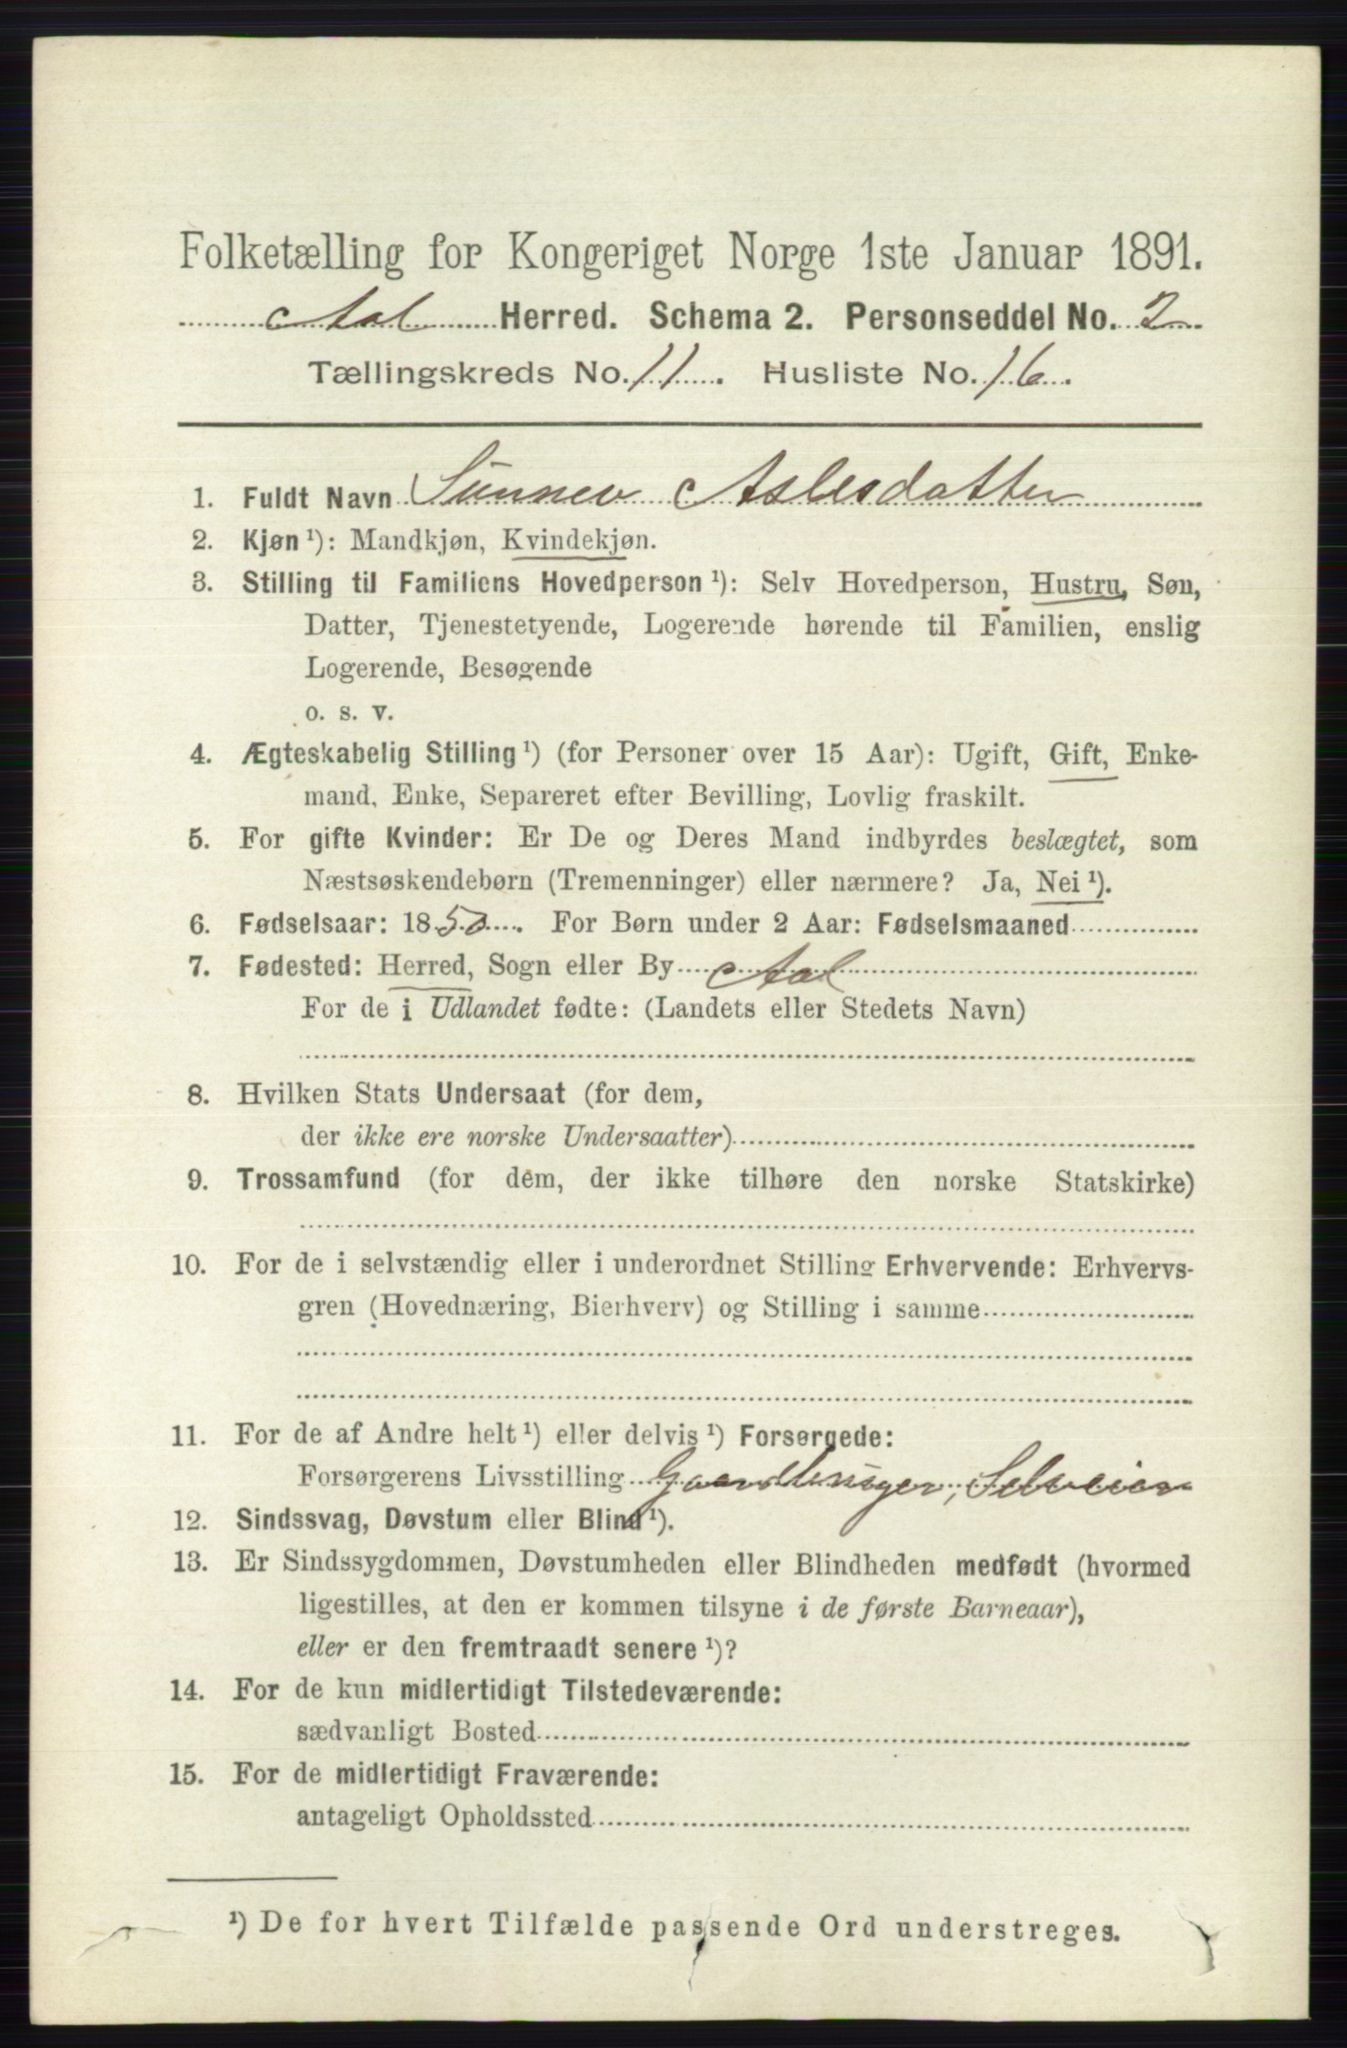 Folketælling for Kongeriget Norge 1ste Januar 1891.
Aal Herred. Schema 2. Personseddel No. 2
Tællingskreds No. 11. Husliste No. 16.
1. Fuldt Navn Sünnev Aslesdatter
2. Kjøn ¹): Mandkjøn, Kvindekjøn.
3. Stilling til Familiens Hovedperson ¹): Selv Hovedperson, Hustru, Søn,
Datter, Tjenestetyende, Logerende hørende til Familien, enslig
Logerende, Besøgende
o. s. v.
4. Ægteskabelig Stilling ¹) (for Personer over 15 Aar): Ugift, Gift, Enke-
mand, Enke, Separeret efter Bevilling, Lovlig fraskilt.
5. For gifte Kvinder: Er De og Deres Mand indbyrdes beslægtet, som
Næstsøskendebørn (Tremenninger) eller nærmere? Ja, Nei ¹).
6. Fødselsaar: 1850. For Børn under 2 Aar: Fødselsmaaned
7. Fødested: Herred, Sogn eller By Aal
For de i Udlandet fødte: (Landets eller Stedets Navn)
8. Hvilken Stats Undersaat (for dem,
der ikke ere norske Undersaatter)
9. Trossamfund (for dem, der ikke tilhøre den norske Statskirke)
10. For de i selvstændig eller i underordnet Stilling Erhvervende: Erhvervs-
gren (Hovednæring, Bierhverv) og Stilling i samme
11. For de af Andre helt ¹) eller delvis ¹) Forsørgede:
Forsørgerens Livsstilling Gaardbruger, Selveier
12. Sindssvag, Døvstum eller Blind ¹).
13. Er Sindssygdommen, Døvstumheden eller Blindheden medfødt (hvormed
ligestilles, at den er kommen tilsyne i de første Barneaar),
eller er den fremtraadt senere ¹)?
14. For de kun midlertidigt Tilstedeværende:
sædvanligt Bosted
15. For de midlertidigt Fraværende:
antageligt Opholdssted
¹) De for hvert Tilfælde passende Ord understreges.